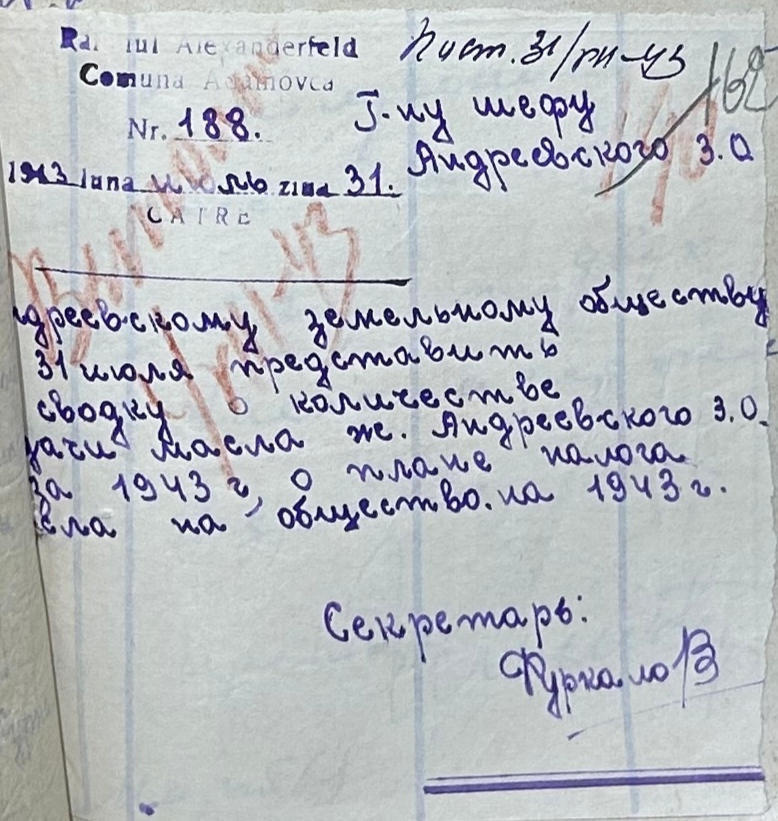 Alexanderfeld
Comuna Adamovca
Nr. 188.
1943 luna июль ziua 31.
CATRE
Пост. 31/VII-43
162
Г-ну шефу
Андреевского З.О
дреевскому земельному обществу
31 июля представить
сводку о количестве
дачи масла же. Андреевского З.О.
за 1943 г, о плане налога
сла на общество. на 1943 г.
Секретарь: